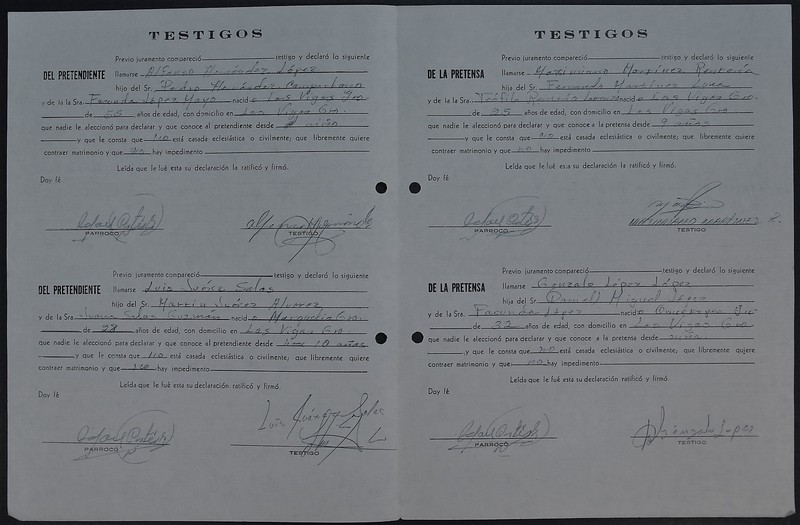 TESTIGOS
Previo juramento compareció testigo y declaró lo siguiente
DEL PRETENDIENTE llamarse Alfonso Hernández López
hijo del Sr. Pedro Hernández
y de la Sra. Facunda López Mayo nacid o Las Vigas Gro
de 55 años de edad, con domicilio en Las Vigas Gro
que nadie le aleccionó para declarar y que conoce al pretendiente desde niño
y que le consta que no está casada eclesiástica o civilmente; que libremente quiere
contraer matrimonio y que no hay impedimento
Leída que le fué esta su declaración la ratificó y firmó.
Doy fé
PARROCO
TESTIGO
Previo juramento compareció testigo y declaró lo siguiente
DEL PRETENDIENTE llamarse Luis Juárez Salas
hijo del Sr. Martín Juárez Alvarez
y de la Sra. Juana Salas Guzmán nacid o Gro.
de 28 años de edad, con domicilio en Las Vigas Gro
que nadie le aleccionó para declarar y que conoce al pretendiente desde 10 años
y que le consta que no está casada eclesiástica o civilmente; que libremente quiere
contraer matrimonio y que no hay impedimento
Leída que le fué esta su declaración ratificó y firmó
Doy fé
Luis Juárez Salas
PARROCO
TESTIGO
TESTIGOS
Previo juramento compareció testigo y declaró lo siguiente
DE LA PRETENSA llamarse Maximiano Martínez Rentería
hijo del Sr. Fernando Martínez Luna
y de la Sra. nacid o Las Vigas Gro
de 25 años de edad, con domicilio en Las Vigas Gro
que nadie le aleccionó para declarar y que conoce a la pretensa desde 9 años
y que le consta que no está casada eclesiástica o civilmente; que libremente quiere
contraer matrimonio y que no hay impedimento
Leída que le fué esta su declaración la ratificó y firmó.
Doy fé
PARROCO
TESTIGO
Previo juramento compareció testigo y declaró lo siguiente
DE LA PRETENSA llamarse Gonzalo López López
hijo del Sr. Miguel López
y de la Sra. Facunda López nacid o
de 32 años de edad, con domicilio en Las Vigas Gro
que nadie le aleccionó para declarar y que conoce a la pretensa desde niña
y que le consta que no está casada eclesiástica o civilmente; que libremente quiere
contraer matrimonio y que no hay impedimento
Leída que le fué esta su declaración la ratificó y firmó
Doy fé
Gonzalo Lopez
PARROCO
TESTIGO